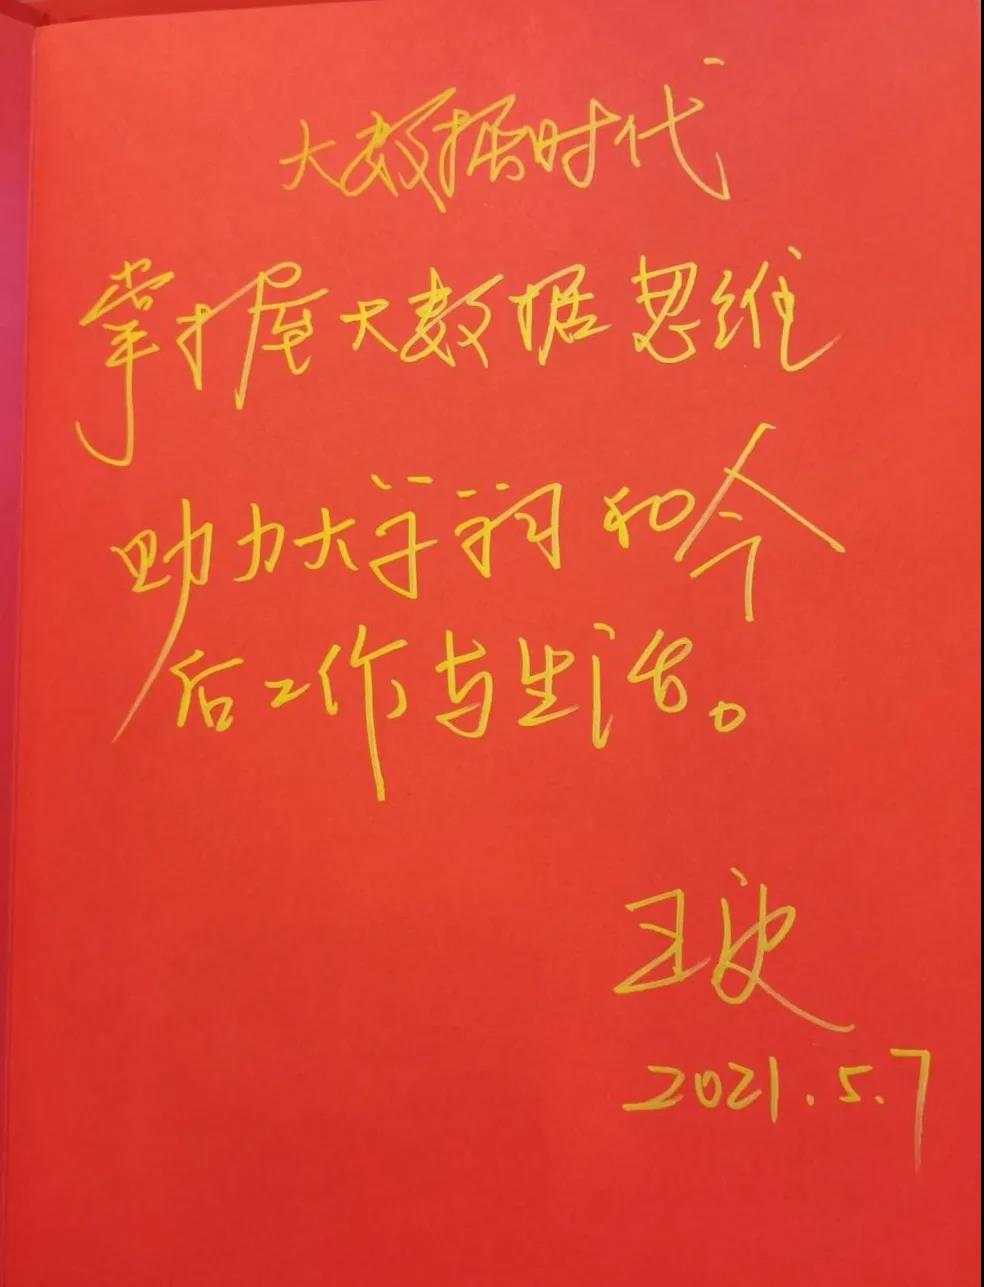 大数据时代
掌握大数据思维
助力大学学习和今
后工作与生活。
王
2021.5.7